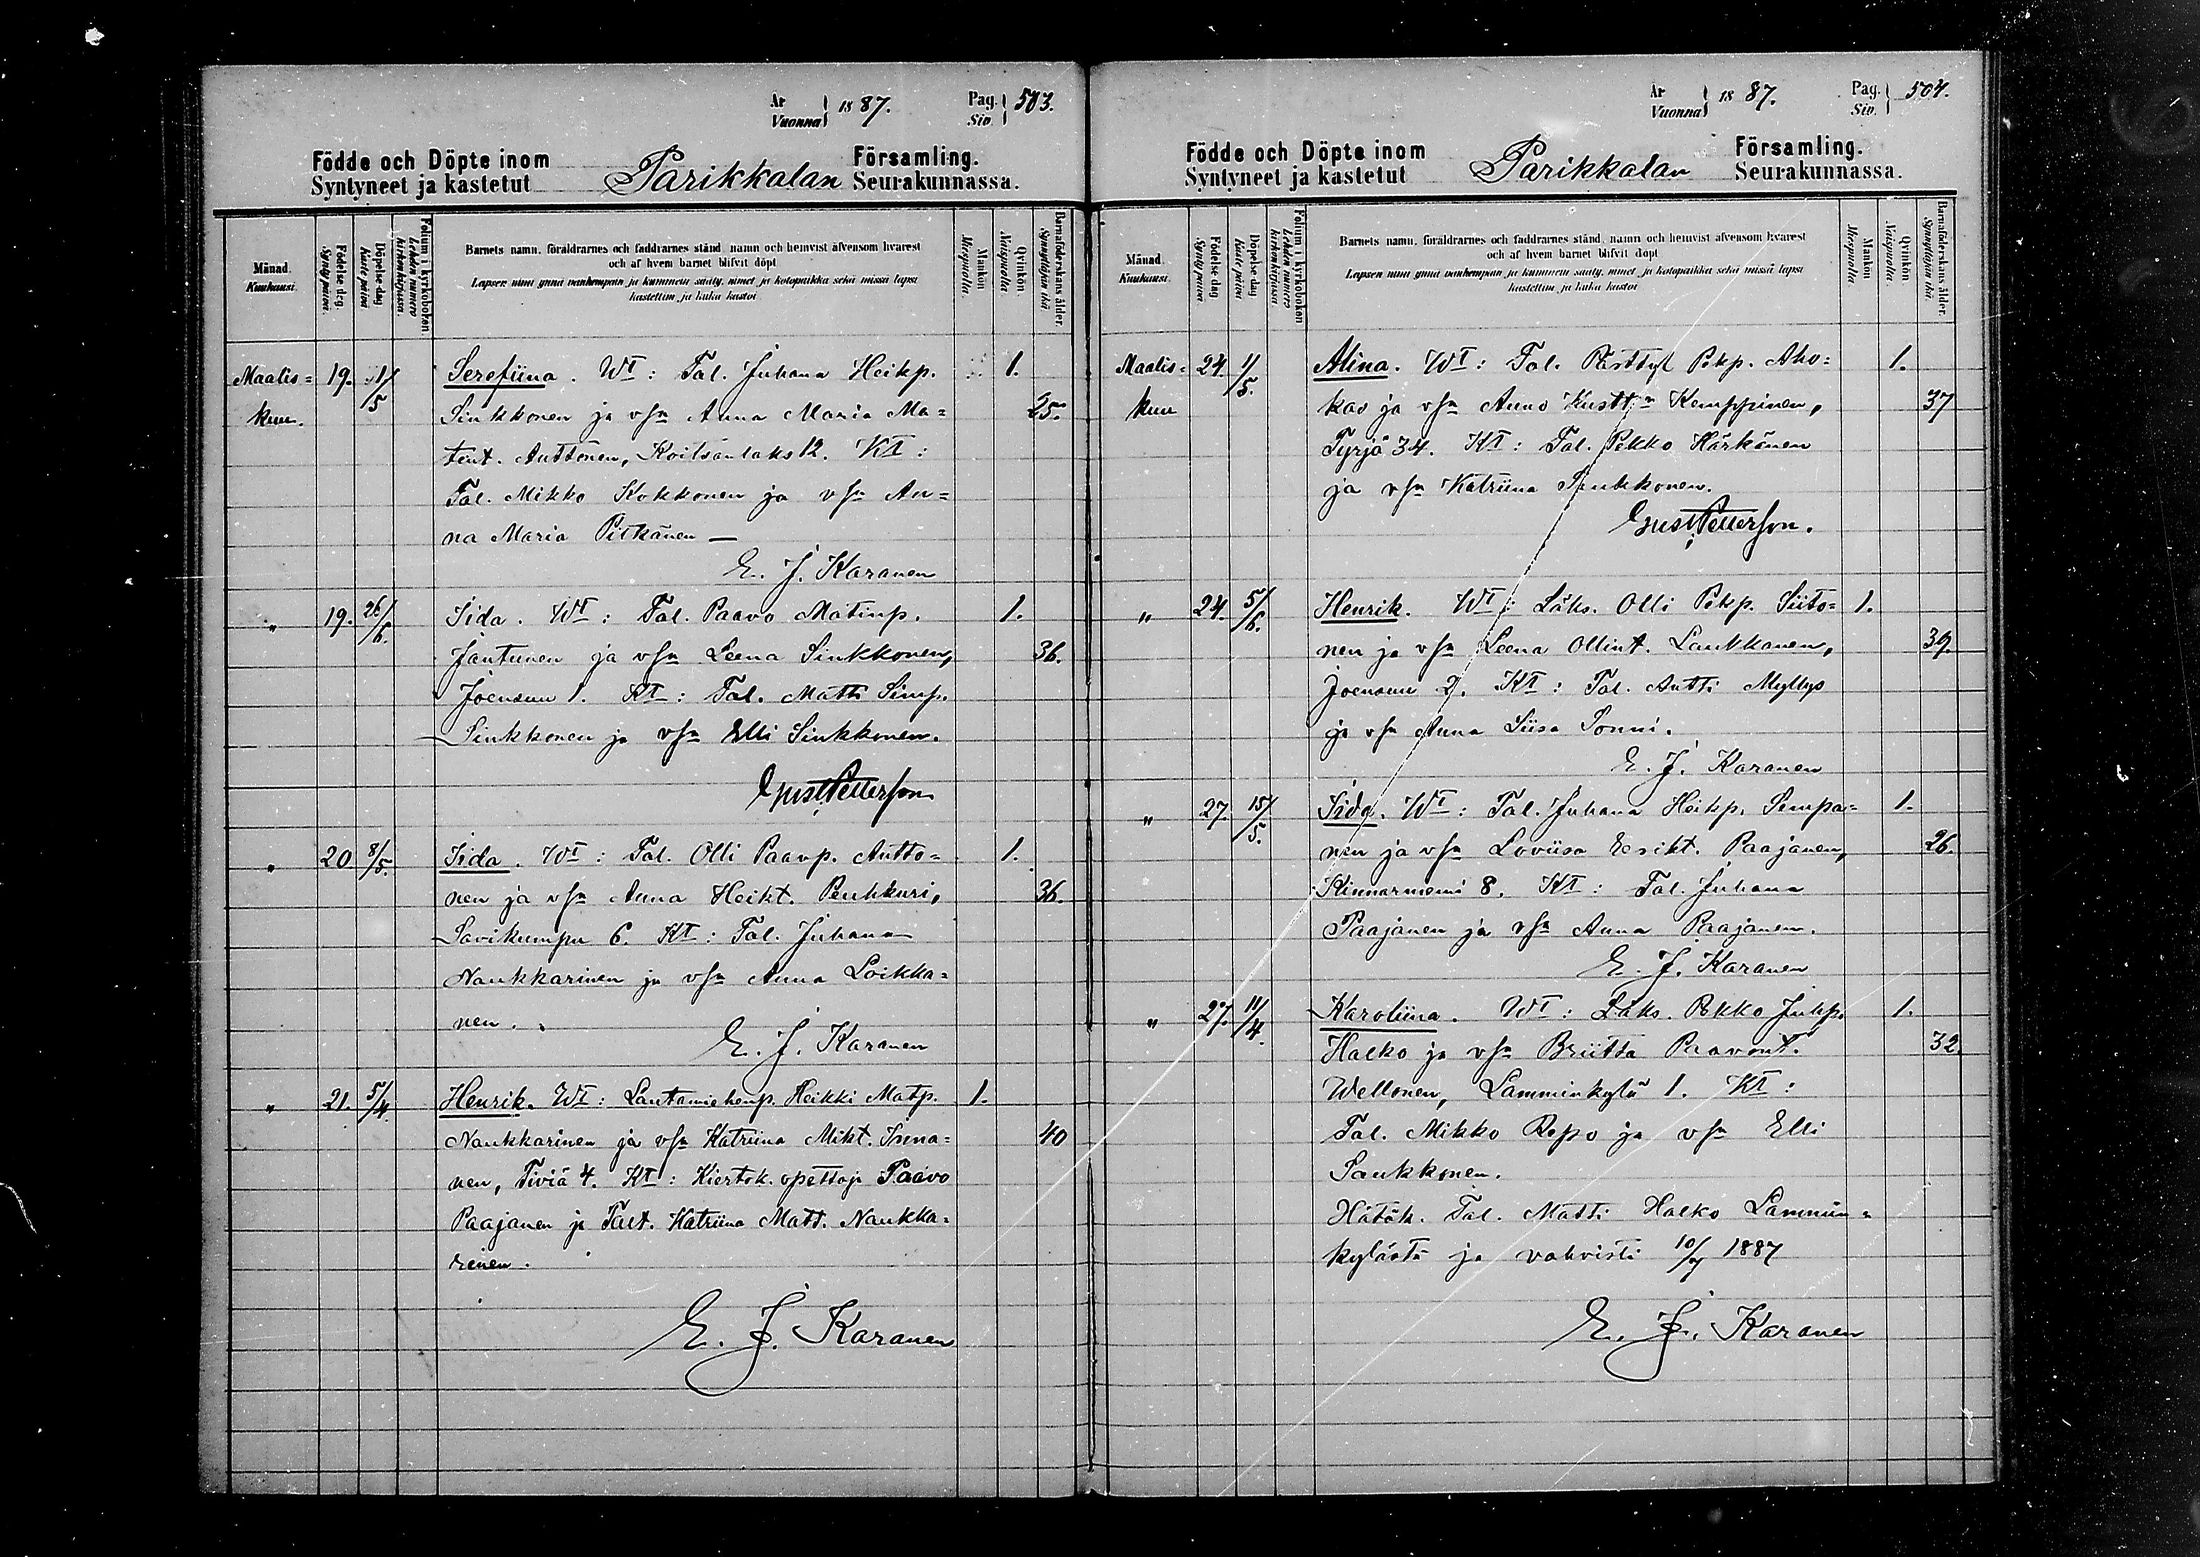 År
Vuonna } 1887. Pag.
Siv. } 503.
Födde och Döpte inom Parikkalan Församling.
Syntyneet ja kastetut Seurakunnassa.
Månad.
Kuukausi.
Födelse dag.
Synty päivä.
Döpelse dag
Kaste päivä
Folium i kyrkoboken.
Lehden numero kirkonkirjassa.
Barnets namn, föräldrarnes och faddrarnes stånd, namn och hemvist äfvensom hvarest
och af hvem barnet blifvit döpt
Lapsen nimi ynnä vanhempain ja kummein sääty, nimet ja kotopaikka sekä missä lapsi
kastettiin ja kuka kastoi
Mankön
Miespuolta.
Qvinkön.
Naispuolta.
Barnaföderskans ålder.
Synnyttäjän ikä.
Maalis= 19. 1/5 Serefiina. Wt: Tal. Juhana Heikp. 1.
kuu. Sinkkonen ja vsa Anna Maria Ma= 25.
tint. Auttonen, Koitsanlaks 12. Kt:
Tal. Mikko Kokkonen ja vsa An=
na Maria Pitkänen —
E. J. Karanen
" 19. 26/6. Iida. Wt: Tal. Paavo Matinp. 1.
Jantunen ja vsa Leena Sinkkonen, 36.
Joensuu 1. Kt: Tal. Matti Simp.
Sinkkonen ja vsa Elli Sinkkonen.
Gust Petterson
" 20 8/5. Iida. Wt: Tal. Olli Paavp. Autto= 1.
nen ja vsa Anna Heikt. Peuhkuri, 36.
Savikumpu 6. Kt: Tal. Juhana
Naukkarinen ja vsa Anna Loikka=
nen.
E. J. Karanen
" 21. 5/4. Henrik. Wt: Lautamiehenp. Heikki Matp. 1.
Naukkarinen ja vsa Katriina Mikt. Inna= 40
nen, Tiviä 4. Kt: Kiertok. opettaja Paavo
Paajanen ja Talt. Katriina Matt. Naukka=
rinen.
E. J. Karanen
År
Vuonna } 1887. Pag.
Siv. } 504.
Födde och Döpte inom Parikkalan Församling.
Syntyneet ja kastetut Seurakunnassa.
Månad.
Kuukausi.
Födelse dag
Synty päivä.
Döpelse dag
Kaste päivä
Folium i kyrkoboken
Lehden numero kirkonkirjassa
Barnets namn, föräldrarnes och faddrarnes stånd, namn och hemvist äfvensom hvarest
och af hvem barnet blifvit döpt
Lapsen nimi ynnä vanhempain ja kummein sääty, nimet ja kotopaikka sekä missä lapsi
kastettiin ja kuka kastoi
Mankön
Miespuolta.
Qvinkön.
Naispuolta.
Barnaföderskans ålder.
Synnyttäjän ikä.
Maalis= 24. 1/5. Alina. Wt: Tal. Pekp. Aho= 1.
kuu kas ja vsa Anna Kemppinen, 37
Tyrjä 34. Kt: Tal. Pekko Härkänen
ja vsa Katriina Saukkonen.
Gust Petterson.
" 24. 5/6. Henrik. Wt: Läks. Olli Pekp. Siito= 1.
nen ja vsa Leena Ollint. Laukkanen, 39.
Joensuu 2. Kt: Tal. Antti Myllys
ja vsa Anna Liisa Sonni.
E. J. Karanen
" 27. 15/5. Iida. Wt: Tal. Juhana Heikp. Sempa= 1.
nen ja vsa Loviisa Eerikt. Paajanen, 26.
Kinnarniemi 8. Kt: Tal. Juhana
Paajanen ja vsa Anna Paajanen.
E. J. Karanen
" 27. 11/4. Karoliina. Wt: Läks. Pekko Juhp. 1.
Halko ja vsa Briitta Paavont. 32.
Wellonen, Lamminkylä 1. Kt:
Tal. Mikko Repo ja vsa Elli
Saukkonen.
Hätäk. Tal. Matti Halko Lammin=
kylästä ja vahvisti 10/7 1887
E. J. Karanen